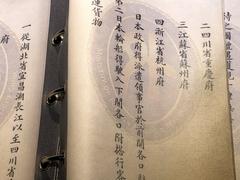 二四川省重慶府
三江蘇省蘇州府
四浙江省杭州府
日本政府得派遣領事官於前開各口
第二日本輪船得駛入下開各口附搭行客
運貨物
一從湖北省宜昌溯長江以至四川省
府